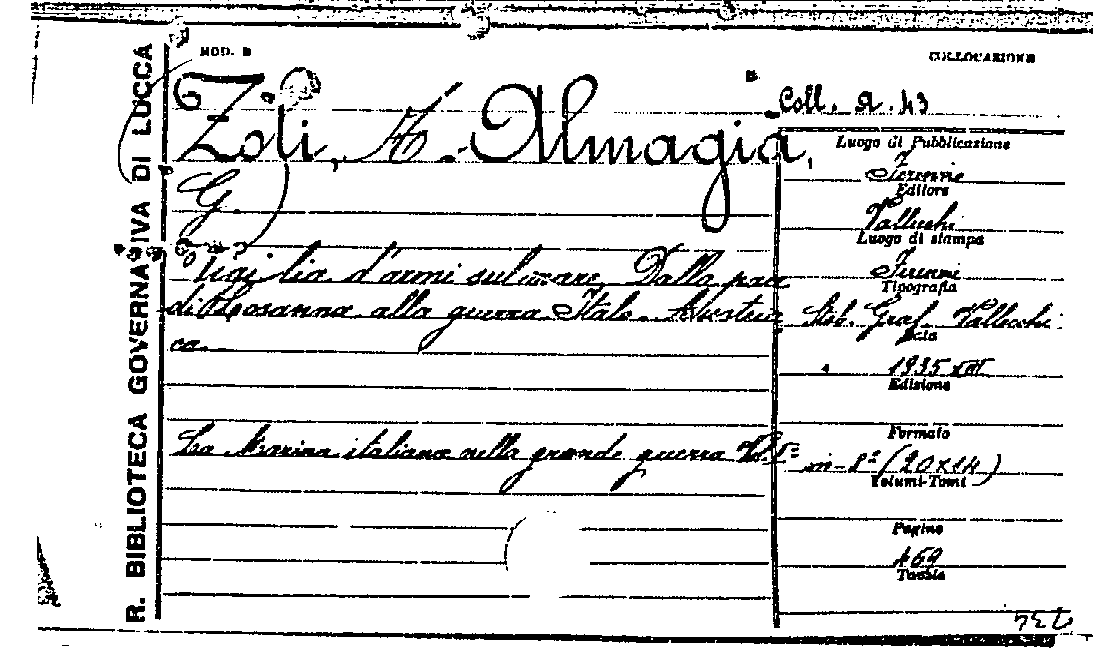 R. BIBLIOTECA GOVERNATIVA DI LUCCA
MOD. B
COLLOCAZIONE
Coll. A. 43
Zoli, A.- Almagia,
G.
Vigilia d'armi sul mare, Dalla pace
di Losanna alla guerra Italo-Austria
ca.
La Marina italiana nella grande guerra Vol. I°
Luogo di Pubblicazione
Firenze
Editore
Vallecchi
Luogo di stampa
Firenze
Tipografia
Stab. Graf. Vallecchi
Data
1935 XIII
Edizione
Formato
in-8° (20x14)
Volumi-Tomi
Pagine
469
Tavole